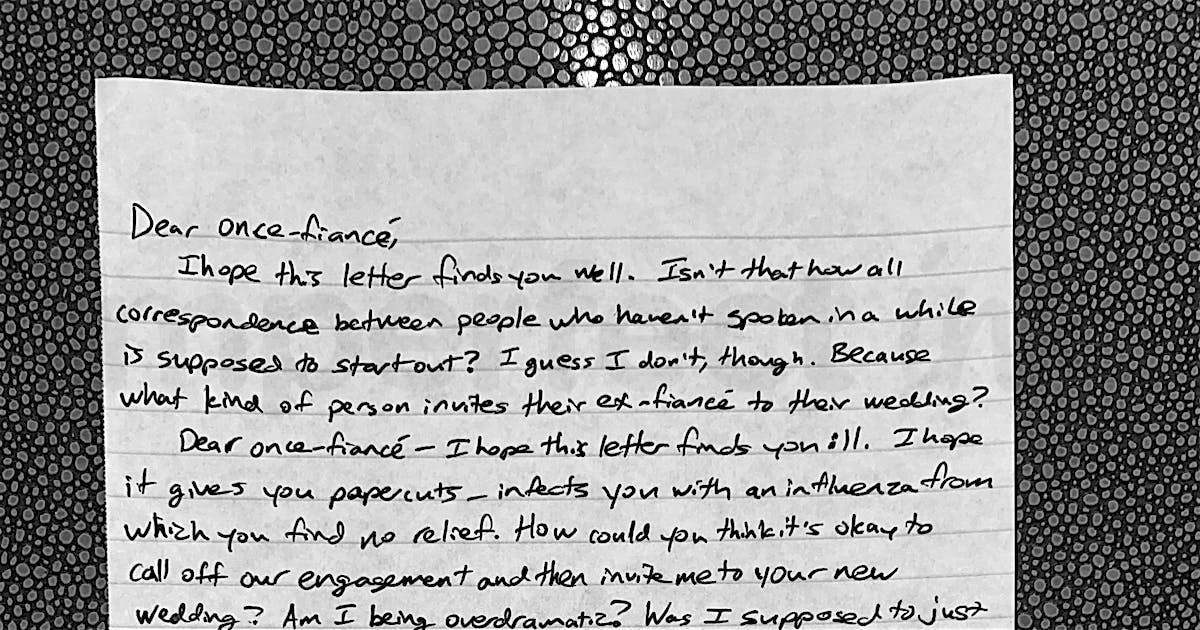 Dear once-fiancé,
I hope this letter finds you well. Isn't that how all
correspondence between people who haven't spoken in a while
is supposed to start out? I guess I don't, though. Because
what kind of person invites their ex-fiancé to their wedding?
Dear once-fiancé – I hope this letter finds you ill. I hope
it gives you papercuts – infects you with an influenza from
which you find no relief. How could you think it's okay to
call off our engagement and then invite me to your new
wedding? Am I being overdramatic? Was I supposed to just